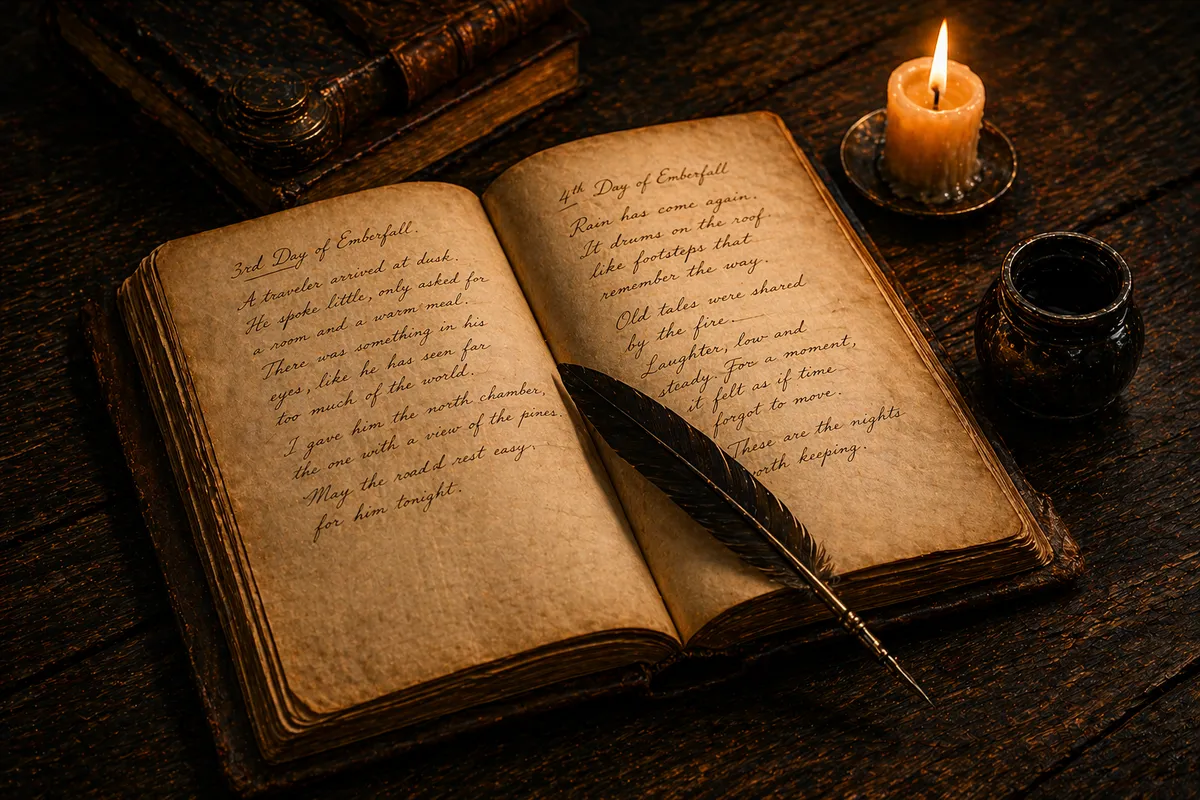 3rd Day of Emberfall.
A traveler arrived at dusk.
He spoke little, only asked for
a room and a warm meal.
There was something in his
eyes, like he has seen far
too much of the world.
I gave him the north chamber,
the one with a view of the pines.
May the road'd rest easy,
for him tonight.
4th Day of Emberfall
Rain has come again.
It drums on the roof.
like footsteps that
remember the way.
Old tales were shared
by the fire.—
Laughter, low and
steady. For a moment,
it felt as if time
forgot to move.
These are the nights
keeping.